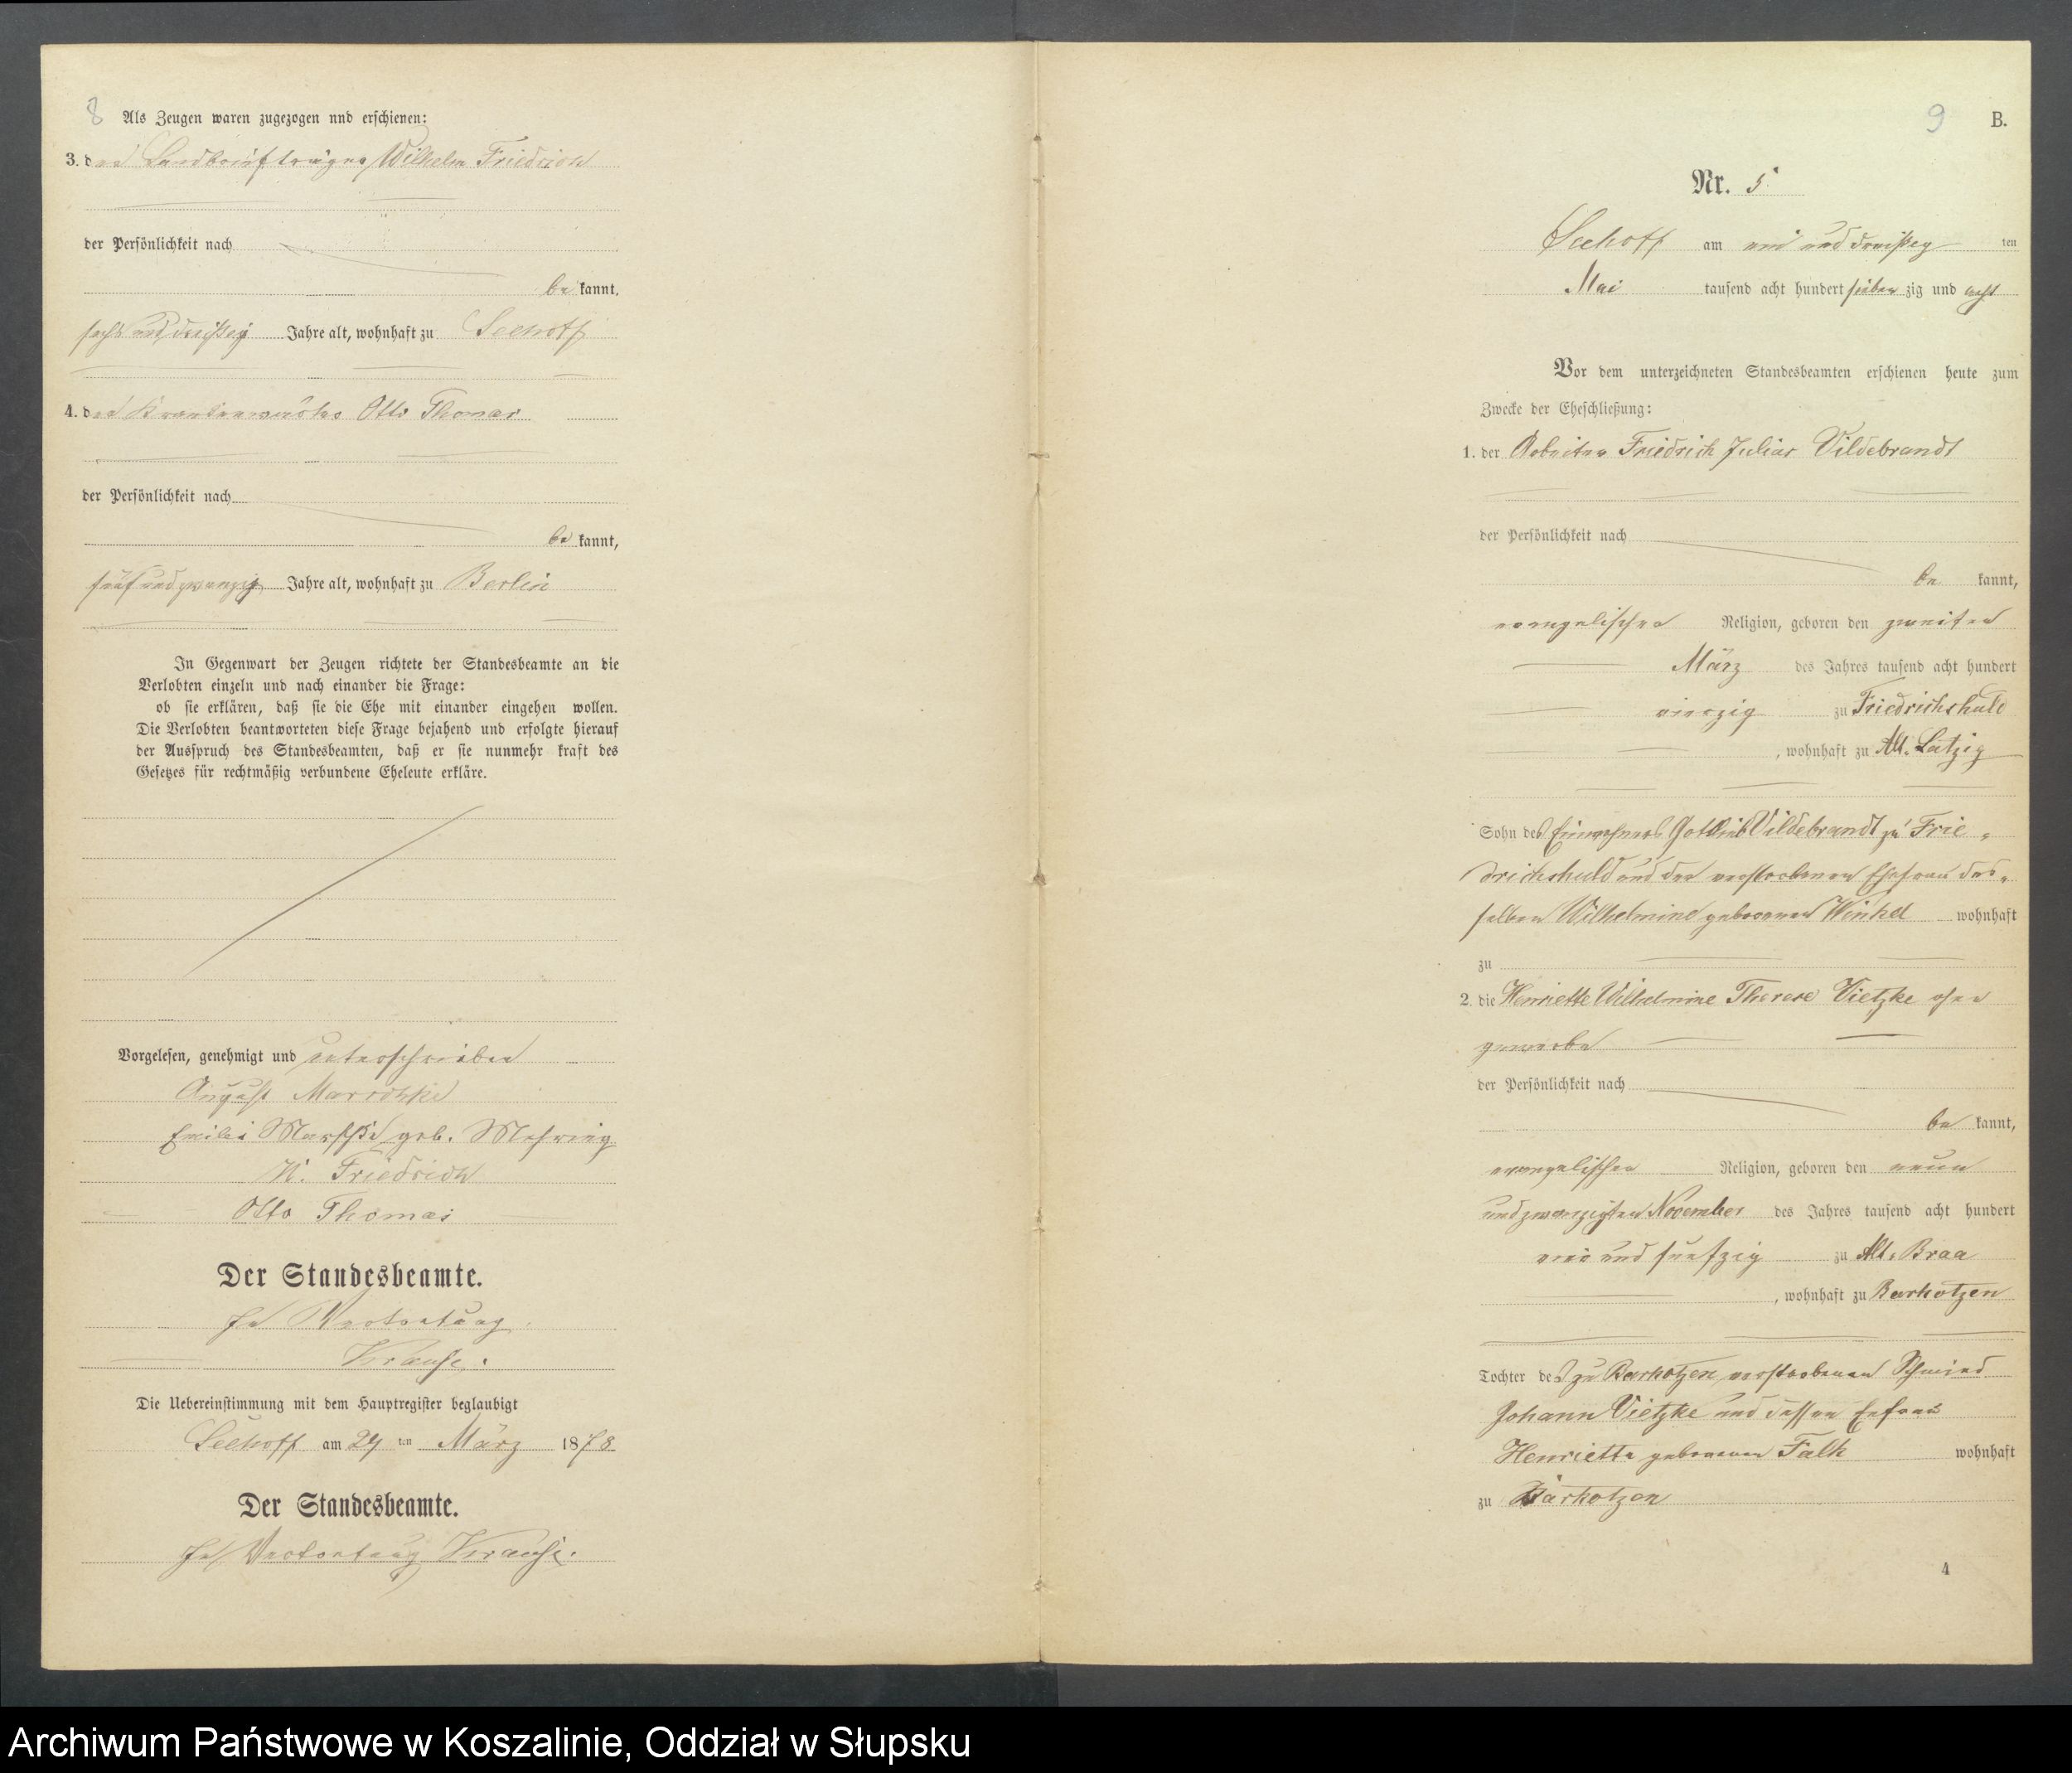 8 Als Zeugen waren zugezogen nnd erschienen:
3. den Landbriefträger Wilhelm Friedrich
der Persönlichkeit nach
be kannt,
sechs und dreißig Jahre alt, wohnhaft zu Seehoff
4. den Krankenwärter Otto Thomas
der Persönlichkeit nach
be kannt,
fünf und zwanzig Jahre alt, wohnhaft zu Berlin
In Gegenwart der Zeugen richtete der Standesbeamte an die
Verlobten einzeln und nach einander die Frage:
ob sie erklären, daß sie die Ehe mit einander eingehen wollen.
Die Verlobten beantworteten diese Frage bejahend und erfolgte hierauf
der Ausspruch des Standesbeamten, daß er sie nunmehr kraft des
Gesetzes für rechtmäßig verbundene Eheleute erkläre.
Vorgelesen, genehmigt und unterschrieben
August
geb. Mehring
W. Friedrich
Otto Thomas
Der Standesbeamte.
In Vertretung.
Krause.
Die Uebereinstimmung mit dem Hauptregister beglaubigt
Seehoff am 24 ten März 1878
Der Standesbeamte.
In Vertretung Krause.
9 B.
Nr. 5
Seehoff am ein und dreißig ten
Mai tausend acht hundert sieben zig und acht
Vor dem unterzeichneten Standesbeamten erschienen heute zum
Zwecke der Eheschließung:
1. der Arbeiter Friedrich Julius Vildebrandt
der Persönlichkeit nach
be kannt,
evangelischer Religion, geboren den zweiten
März des Jahres tausend acht hundert
vierzig zu Friedrichshuld
, wohnhaft zu Alt-Latzig
Sohn des Einwohners Gottlieb Vildebrandt zu Frie-
drichshuld und der verstorbenen Ehefrau des-
selben Wilhelmine geborenen Winkel wohnhaft
zu
2. die Henriette Wilhelmine Therese Vietzke ohne
gewerbe
der Persönlichkeit nach
be kannt,
evangelischer Religion, geboren den neun
und zwanzigsten November des Jahres tausend acht hundert
vier und fünfzig zu Alt-Braa
, wohnhaft zu Barkotzen
Tochter des zu Barkotzen verstorbenen Schmied
Johann Vietzke und dessen Ehefrau
Henriette geborenen Falk wohnhaft
zu Barkotzen
4
Archiwum Państwowe w Koszalinie, Oddział w Słupsku